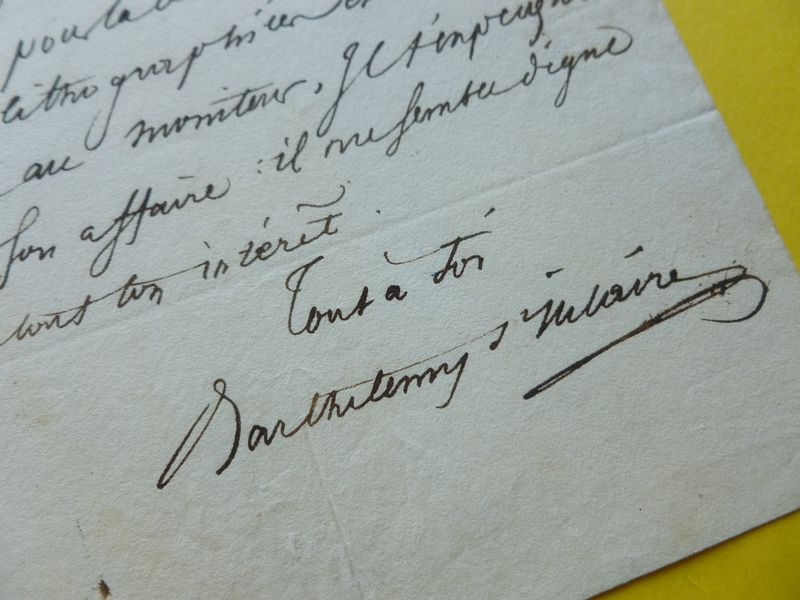 pour la
lithographier
au moniteur, Je t'en
son affaire : il me semble digne
tout ton intérêt.
Tout à toi
Barthélemy St hilaire